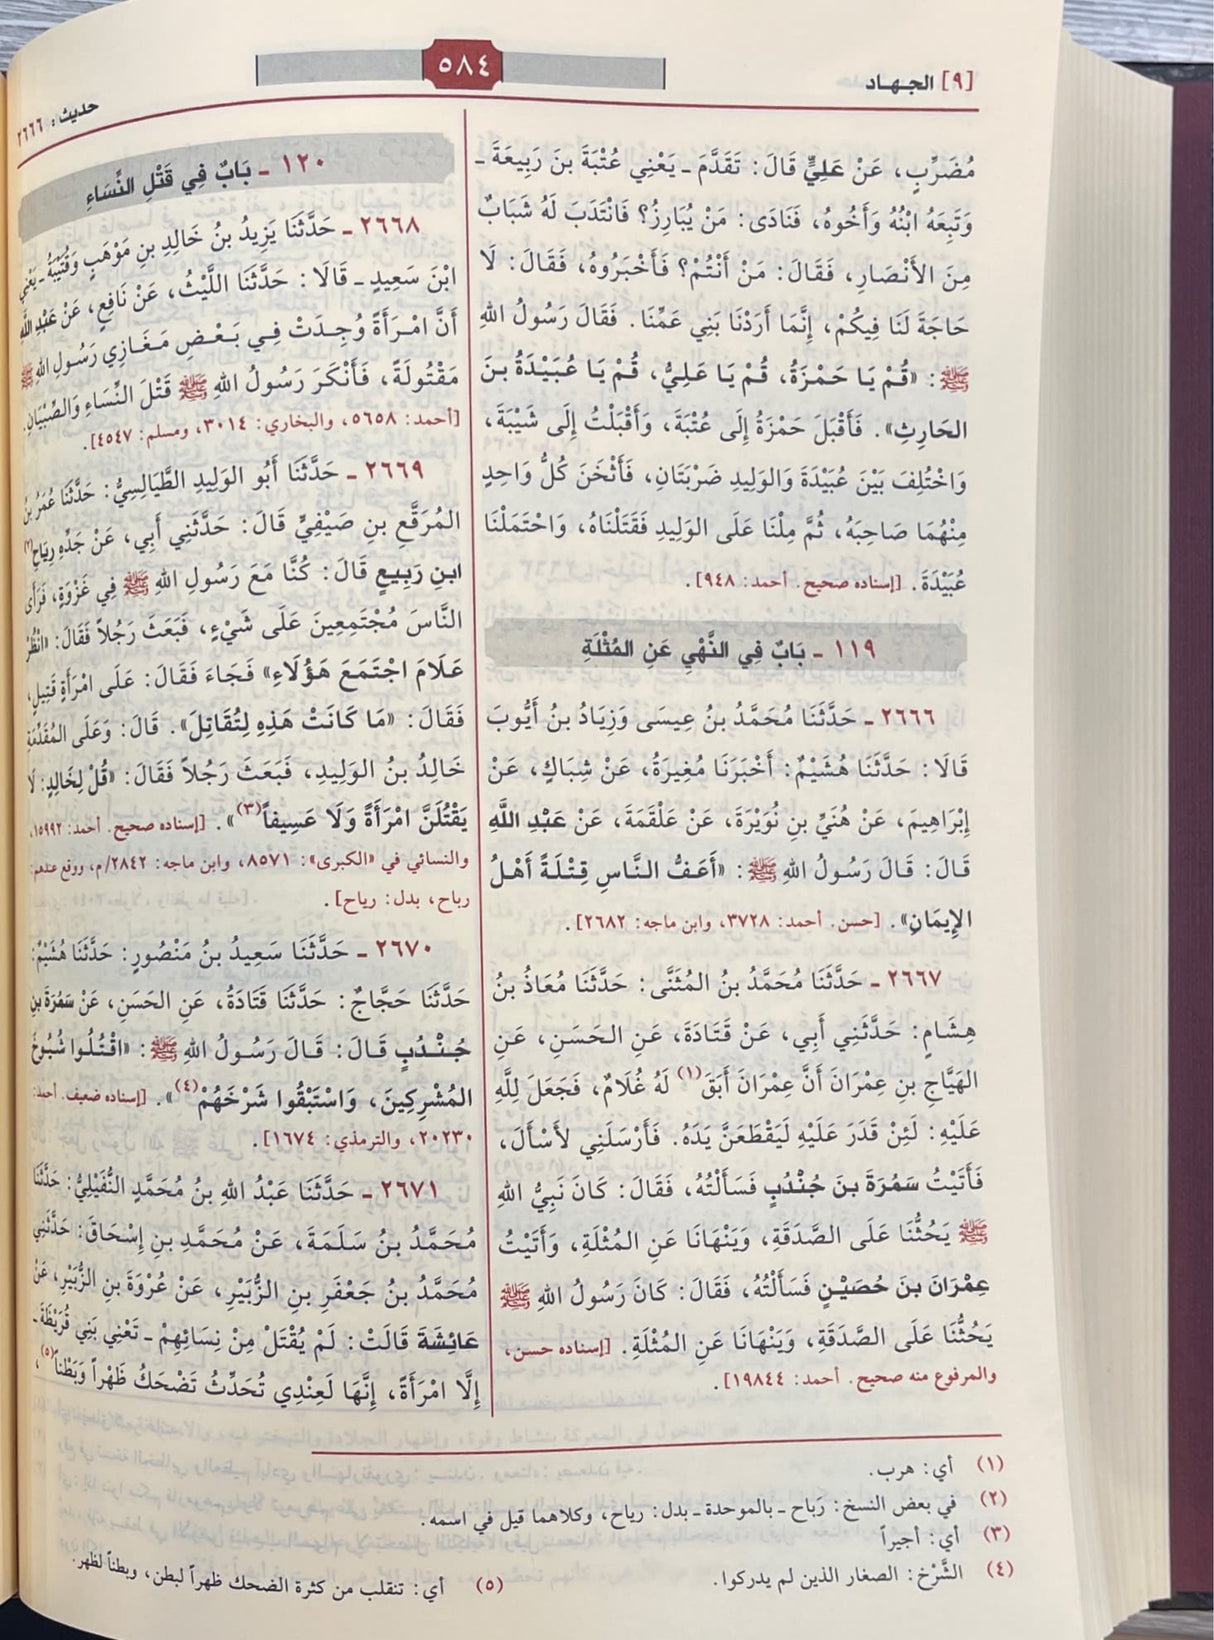 [٩] الجهاد
٥٨٤
حديث: ٢٦٦٦
مُضَرِّبٍ، عَنْ عَلِيٍّ قَالَ: تَقَدَّمَ ـ يَعْنِي عُتْبَةَ بنَ رَبِيعَةَ ـ
وَتَبِعَهُ ابْنُهُ وَأَخُوهُ، فَنَادَى: مَنْ يُبَارِزُ؟ فَانْتَدَبَ لَهُ شَبَابٌ
مِنَ الأَنْصَارِ، فَقَالَ: مَنْ أَنْتُمْ؟ فَأَخْبَرُوهُ، فَقَالَ: لَا
حَاجَةَ لَنَا فِيكُمْ، إِنَّمَا أَرَدْنَا بَنِي عَمِّنَا. فَقَالَ رَسُولُ اللهِ
ﷺ: «قُمْ يَا حَمْزَةُ، قُمْ يَا عَلِيُّ، قُمْ يَا عُبَيْدَةُ بنَ
الحَارِثِ». فَأَقْبَلَ حَمْزَةُ إِلَى عُتْبَةَ، وَأَقْبَلْتُ إِلَى شَيْبَةَ،
وَاخْتُلِفَ بَيْنَ عُبَيْدَةَ وَالوَلِيدِ ضَرْبَتَانِ، فَأَثْخَنَ كُلُّ وَاحِدٍ
مِنْهُمَا صَاحِبَهُ، ثُمَّ مِلْنَا عَلَى الوَلِيدِ فَقَتَلْنَاهُ، وَاحْتَمَلْنَا
عُبَيْدَةَ. [إسناده صحيح. أحمد: ٩٤٨].
١١٩ ـ بَابٌ فِي النَّهْيِ عَنِ المُثْلَةِ
٢٦٦٦ ـ حَدَّثَنَا مُحَمَّدُ بنُ عِيسَى وَزِيَادُ بنُ أَيُّوبَ
قَالَا: حَدَّثَنَا هُشَيْمٌ: أَخْبَرَنَا مُغِيرَةُ، عَنْ شِبَاكٍ، عَنْ
إِبْرَاهِيمَ، عَنْ هُنَيِّ بنِ نُوَيْرَةَ، عَنْ عَلْقَمَةَ، عَنْ عَبْدِ اللَّهِ
قَالَ: قَالَ رَسُولُ اللهِ ﷺ: «أَعَفُّ النَّاسِ قِتْلَةً أَهْلُ
الإِيمَانِ». [حسن. أحمد: ٣٧٢٨، وابن ماجه: ٢٦٨٢].
٢٦٦٧ ـ حَدَّثَنَا مُحَمَّدُ بنُ المُثَنَّى: حَدَّثَنَا مُعَاذُ بنُ
هِشَامٍ: حَدَّثَنِي أَبِي، عَنْ قَتَادَةَ، عَنِ الحَسَنِ، عَنِ
الهَيَّاجِ بنِ عِمْرَانَ أَنَّ عِمْرَانَ أَبَقَ(١) لَهُ غُلَامٌ، فَجَعَلَ لِلَّهِ
عَلَيْهِ: لَئِنْ قَدَرَ عَلَيْهِ لَيَقْطَعَنَّ يَدَهُ. فَأَرْسَلَنِي لأَسْأَلَ،
فَأَتَيْتُ سَمُرَةَ بنَ جُنْدُبٍ فَسَأَلْتُهُ، فَقَالَ: كَانَ نَبِيُّ اللهِ
ﷺ يَحُثُّنَا عَلَى الصَّدَقَةِ، وَيَنْهَانَا عَنِ المُثْلَةِ، وَأَتَيْتُ
عِمْرَانَ بنَ حُصَيْنٍ فَسَأَلْتُهُ، فَقَالَ: كَانَ رَسُولُ اللهِ ﷺ
يَحُثُّنَا عَلَى الصَّدَقَةِ، وَيَنْهَانَا عَنِ المُثْلَةِ. [إسناده حسن،
والمرفوع منه صحيح. أحمد: ١٩٨٤٤].
١٢٠ ـ بَابٌ فِي قَتْلِ النِّسَاءِ
٢٦٦٨ ـ حَدَّثَنَا يَزِيدُ بنُ خَالِدِ بنِ مَوْهَبٍ وَقُتَيْبَةُ ـ يَعْنِي
ابْنَ سَعِيدٍ ـ قَالَا: حَدَّثَنَا اللَّيْثُ، عَنْ نَافِعٍ، عَنْ عَبْدِ اللَّهِ
أَنَّ امْرَأَةً وُجِدَتْ فِي بَعْضِ مَغَازِي رَسُولِ اللهِ ﷺ
مَقْتُولَةً، فَأَنْكَرَ رَسُولُ اللهِ ﷺ قَتْلَ النِّسَاءِ وَالصِّبْيَانِ.
[أحمد: ٥٦٥٨، والبخاري: ٣٠١٤، ومسلم: ٤٥٤٧].
٢٦٦٩ ـ حَدَّثَنَا أَبُو الوَلِيدِ الطَّيَالِسِيُّ: حَدَّثَنَا عُمَرُ بنُ
المُرَقَّعِ بنِ صَيْفِيٍّ قَالَ: حَدَّثَنِي أَبِي، عَنْ جَدِّهِ رِيَاحِ(٢)
ابنِ رَبِيعٍ قَالَ: كُنَّا مَعَ رَسُولِ اللهِ ﷺ فِي غَزْوَةٍ، فَرَأَى
النَّاسَ مُجْتَمِعِينَ عَلَى شَيْءٍ، فَبَعَثَ رَجُلاً فَقَالَ: «انْظُرْ
عَلَامَ اجْتَمَعَ هَؤُلَاءِ» فَجَاءَ فَقَالَ: عَلَى امْرَأَةٍ قَتِيلٍ،
فَقَالَ: «مَا كَانَتْ هَذِهِ لِتُقَاتِلَ». قَالَ: وَعَلَى المُقَدِّمَةِ
خَالِدُ بنُ الوَلِيدِ، فَبَعَثَ رَجُلاً فَقَالَ: «قُلْ لِخَالِدٍ: لَا
يَقْتُلَنَّ امْرَأَةً وَلَا عَسِيفاً(٣)». [إسناده صحيح. أحمد: ١٥٩٩٢،
والنسائي في «الكبرى»: ٨٥٧١، وابن ماجه: ٢٨٤٢/م، ووقع عندهم:
رباح، بدل: رياح].
٢٦٧٠ ـ حَدَّثَنَا سَعِيدُ بنُ مَنْصُورٍ: حَدَّثَنَا هُشَيْمٌ:
حَدَّثَنَا حَجَّاجٌ: حَدَّثَنَا قَتَادَةُ، عَنِ الحَسَنِ، عَنْ سَمُرَةَ بنِ
جُنْدُبٍ قَالَ: قَالَ رَسُولُ اللهِ ﷺ: «اقْتُلُوا شُيُوخَ
المُشْرِكِينَ، وَاسْتَبْقُوا شَرْخَهُمْ(٤)». [إسناده ضعيف. أحمد:
٢٠٢٣٠، والترمذي: ١٦٧٤].
٢٦٧١ ـ حَدَّثَنَا عَبْدُ اللهِ بنُ مُحَمَّدٍ النُّفَيْلِيُّ: حَدَّثَنَا
مُحَمَّدُ بنُ سَلَمَةَ، عَنْ مُحَمَّدِ بنِ إِسْحَاقَ: حَدَّثَنِي
مُحَمَّدُ بنُ جَعْفَرِ بنِ الزُّبَيْرِ، عَنْ عُرْوَةَ بنِ الزُّبَيْرِ، عَنْ
عَائِشَةَ قَالَتْ: لَمْ يُقْتَلْ مِنْ نِسَائِهِمْ ـ تَعْنِي بَنِي قُرَيْظَةَ ـ
إِلَّا امْرَأَةٌ، إِنَّهَا لَعِنْدِي تُحَدِّثُ تَضْحَكُ ظَهْراً وَبَطْناً(٥)،
(١) أي: هرب.
(٢) في بعض النسخ: رَباح ـ بالموحدة ـ بدل: رياح، وكلاهما قيل في اسمه.
(٣) أي: أجيراً
(٤) الشَّرْخ: الصغار الذين لم يدركوا.
(٥) أي: تنقلب من كثرة الضحك ظهراً لبطن، وبطناً لظهر.